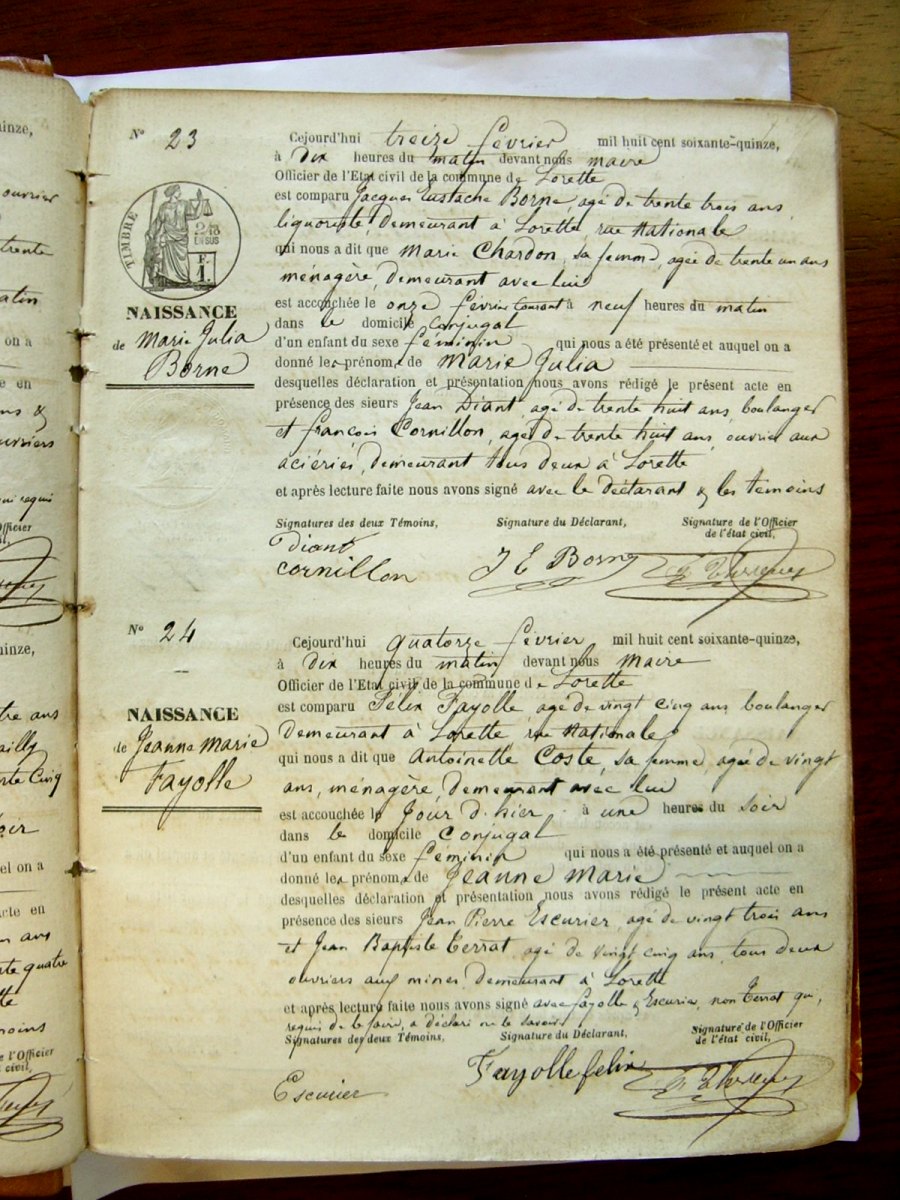 inze,
ouvrier
trente
matin
on a
e en
ns &
ouvriers
qui requis
l'Officier
il,
inze,
tre ans
ailly
nte Cinq
soir
el on a
acte en
n ans
rte quatre
tte
moins
e l'Officier
t civil,
N° 23
TIMBRE
2/10
EN SUS
F.
1.
NAISSANCE
de Marie Julia
Borne
Cejourd'hui treize février mil huit cent soixante-quinze,
à Dix heures du matin devant nous maire
Officier de l'Etat civil de la commune de Lorette
est comparu Jacques Eustache Borne, agé de trente trois ans
liquoriste, demeurant à Lorette, rue Nationale
qui nous a dit que Marie Chardon, sa femme, agée de trente un ans
ménagère, demeurant avec lui
est accouchée le onze février courant à neuf heures du matin
dans le domicile conjugal
d'un enfant du sexe féminin qui nous a été présenté et auquel on a
donné les prénoms de Marie Julia
desquelles déclaration et présentation nous avons rédigé le présent acte en
présence des sieurs Jean Diant, agé de trente huit ans, boulanger
et françois Cornillon, agé de trente huit ans, ouvrier aux
aciéries, demeurant tous deux à Lorette
et après lecture faite nous avons signé avec le déclarant & les témoins
Signatures des deux Témoins, Signature du Déclarant, Signature de l'Officier
de l'état civil,
Diant
cornillon J E Borne
N° 24
NAISSANCE
de Jeanne Marie
Fayolle
Cejourd'hui quatorze février mil huit cent soixante-quinze,
à Dix heures du matin devant nous Maire
Officier de l'Etat civil de la commune de Lorette
est comparu Félix Fayolle agé de vingt cinq ans boulanger
demeurant à Lorette rue Nationale
qui nous a dit que Antoinette Coste, sa femme, agée de vingt
ans, ménagère, demeurant avec lui
est accouchée le Jour d'hier à une heures du soir
dans le domicile Conjugal
d'un enfant du sexe féminin qui nous a été présenté et auquel on a
donné les prénoms de Jeanne Marie
desquelles déclaration et présentation nous avons rédigé le présent acte en
présence des sieurs Jean Pierre Escurier, agé de vingt trois ans
et Jean Baptiste Terrat, agé de vingt cinq ans, tous deux
ouvriers aux mines, demeurant à Lorette
et après lecture faite nous avons signé avec fayolle & Escurier, non Terrat qui,
requis de le faire, a déclaré ne le savoir
Signatures des deux Témoins, Signature du Déclarant, Signature de l'Officier
de l'état civil,
Escurier Fayolle felix